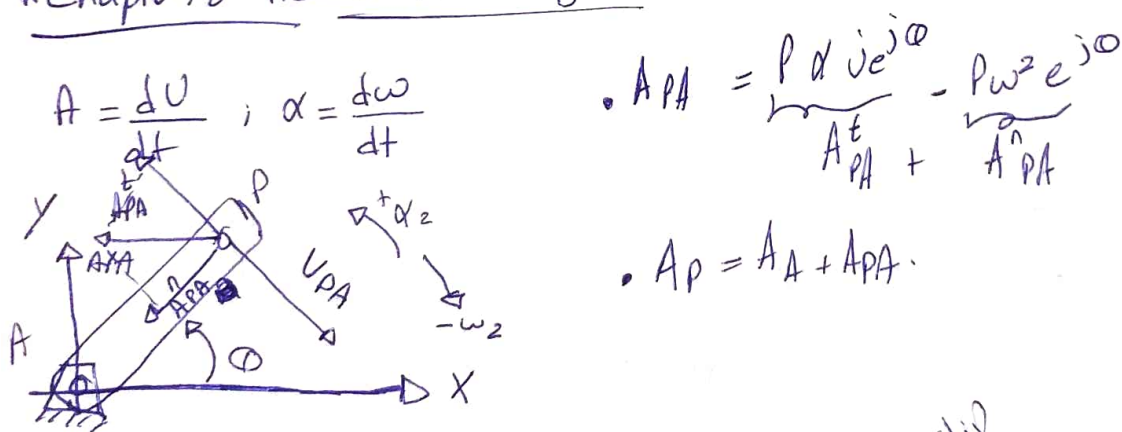 A = dU/dt ; α = dω/dt
. A PA = P α j e^jθ - P ω² e^jθ
A^t PA + A^n PA
. A P = A A + A PA .
Y
A^t PA
P
+α2
A^n PA
U PA
-ω2
A
θ
X